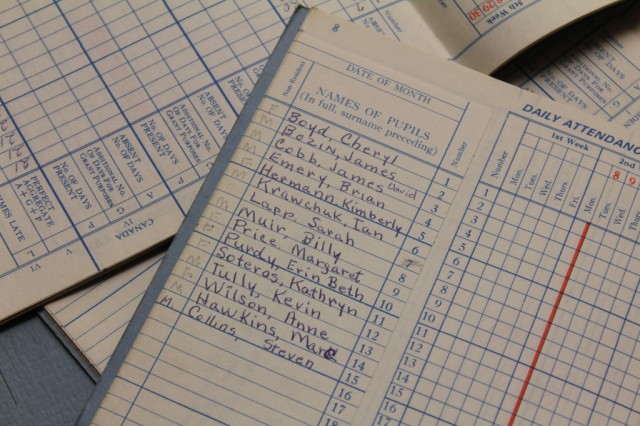 8
DATE OF MONTH
Non-Resident
NAMES OF PUPILS
(In full, surname preceding)
Number
F Boyd Cheryl 1
M BEZIN, James 2
M Cobb, James David 3
M Emery, Brian 4
F Hermann Kimberly 5
M Krawchuk, Ian 6
F Lapp, Sarah 7
M Muir, Billy 8
F Price, Margaret 9
F Purdy, Erin Beth 10
F Soteros, Kathryn 11
M Tully, Kevin 12
F Wilson, Anne 13
M HawKins, Marc 14
M. Collins, Steven 15
16
17
18
DAILY ATTENDANC
1st Week
2nd
Number
Mon.
Tues.
Wed.
Thurs.
Fri.
Mon.
Tues.
Wed.
8
9
1
2
3
4
5
6
7
8
9
10
11
12
13
14
15
16
17
5th Week
28 29 30
Number
ABSENT
No. OF DAYS
No. OF DAYS
PRESENT
ADDITIONAL No.
OF DAYS FOR
GRANT PURPOSES
ABSENT
No. OF DAYS
No. OF DAYS
PRESENT
ADDITIONAL No.
OF DAYS FOR
GRANT PURPOSES
No. OF DAYS
PRESENT
PERFECT
AGGREGATE
TIMES LATE
CANADA